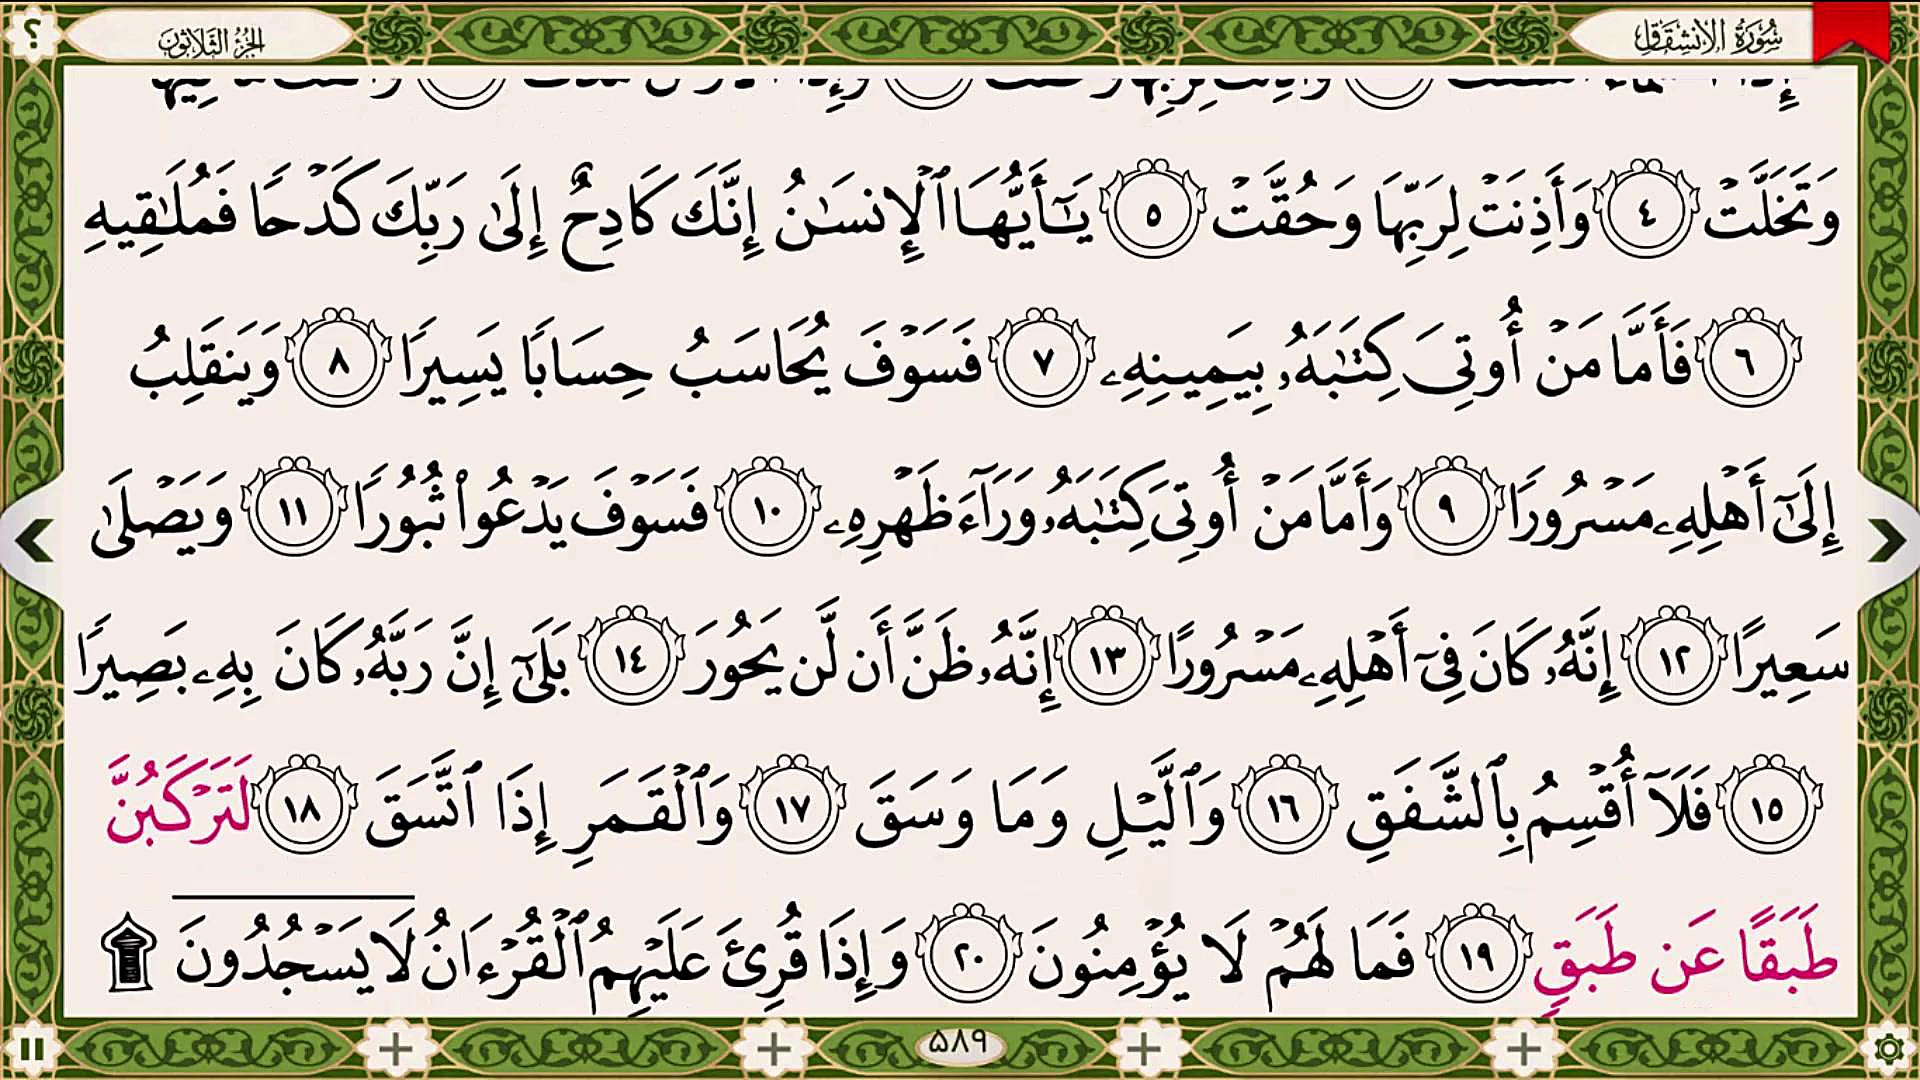 ؟
الجزء الثلاثون
سورة الانشقاق
وَتَخَلَّتْ ٤ وَأَذِنَتْ لِرَبِّهَا وَحُقَّتْ ٥ يَـٰٓأَيُّهَا ٱلْإِنسَـٰنُ إِنَّكَ كَادِحٌ إِلَىٰ رَبِّكَ كَدْحًا فَمُلَـٰقِيهِ
٦ فَأَمَّا مَنْ أُوتِىَ كِتَـٰبَهُۥ بِيَمِينِهِۦ ٧ فَسَوْفَ يُحَاسَبُ حِسَابًا يَسِيرًا ٨ وَيَنقَلِبُ
إِلَىٰٓ أَهْلِهِۦ مَسْرُورًا ٩ وَأَمَّا مَنْ أُوتِىَ كِتَـٰبَهُۥ وَرَآءَ ظَهْرِهِۦ ١٠ فَسَوْفَ يَدْعُوا۟ ثُبُورًا ١١ وَيَصْلَىٰ
سَعِيرًا ١٢ إِنَّهُۥ كَانَ فِىٓ أَهْلِهِۦ مَسْرُورًا ١٣ إِنَّهُۥ ظَنَّ أَن لَّن يَحُورَ ١٤ بَلَىٰٓ إِنَّ رَبَّهُۥ كَانَ بِهِۦ بَصِيرًا
١٥ فَلَآ أُقْسِمُ بِٱلشَّفَقِ ١٦ وَٱلَّيْلِ وَمَا وَسَقَ ١٧ وَٱلْقَمَرِ إِذَا ٱتَّسَقَ ١٨ لَتَرْكَبُنَّ
طَبَقًا عَن طَبَقٍ ١٩ فَمَا لَهُمْ لَا يُؤْمِنُونَ ٢٠ وَإِذَا قُرِئَ عَلَيْهِمُ ٱلْقُرْءَانُ لَا يَسْجُدُونَ ۩
۵۸۹